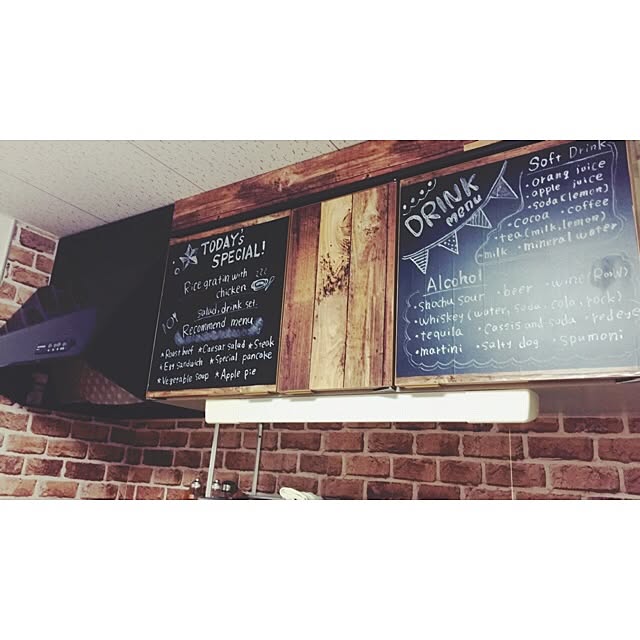 TODAY's
SPECIAL!
Rice gratin with
chicken
salad, drink set.
Recommend menu
*Roast beef *Caesar salad *Steak
*Egg sandwich *Special pancake
*Vegetable soup *Apple pie
DRINK
menu
Soft Drink
・orang juice
・apple juice
・soda (lemon)
・cocoa ・coffee
・tea (milk, lemon)
・milk ・mineral water
Alcohol
・shochu sour ・beer ・wine
・whiskey (water, soda, cola, rock)
・tequila ・Cassis and soda ・redeye
・martini ・salty dog ・spumoni